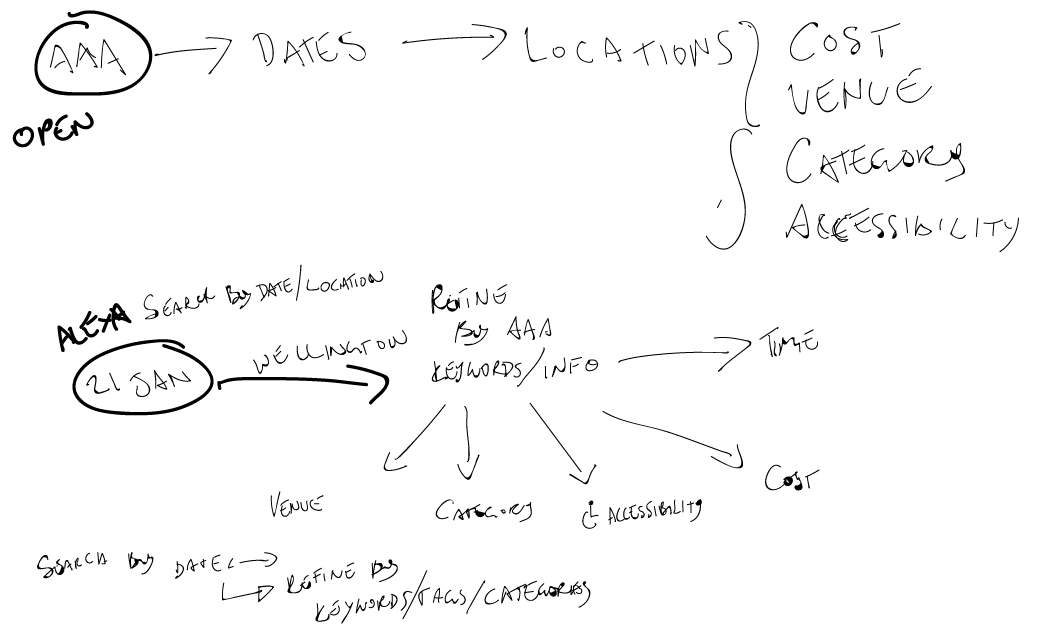 AAA → DATES → LOCATIONS
COST
VENUE
CATEGORY
ACCESSIBILITY
OPEN
ALEXA SEARCH By DATE/LOCATION
21 JAN
WELLINGTON
REFINE
By AAA
KEYWORDS/INFO
TIME
VENUE
CATEGORY
ACCESSIBILITY
COST
SEARCH By DATE
REFINE By
KEYWORDS/TAGS/CATEGORIES